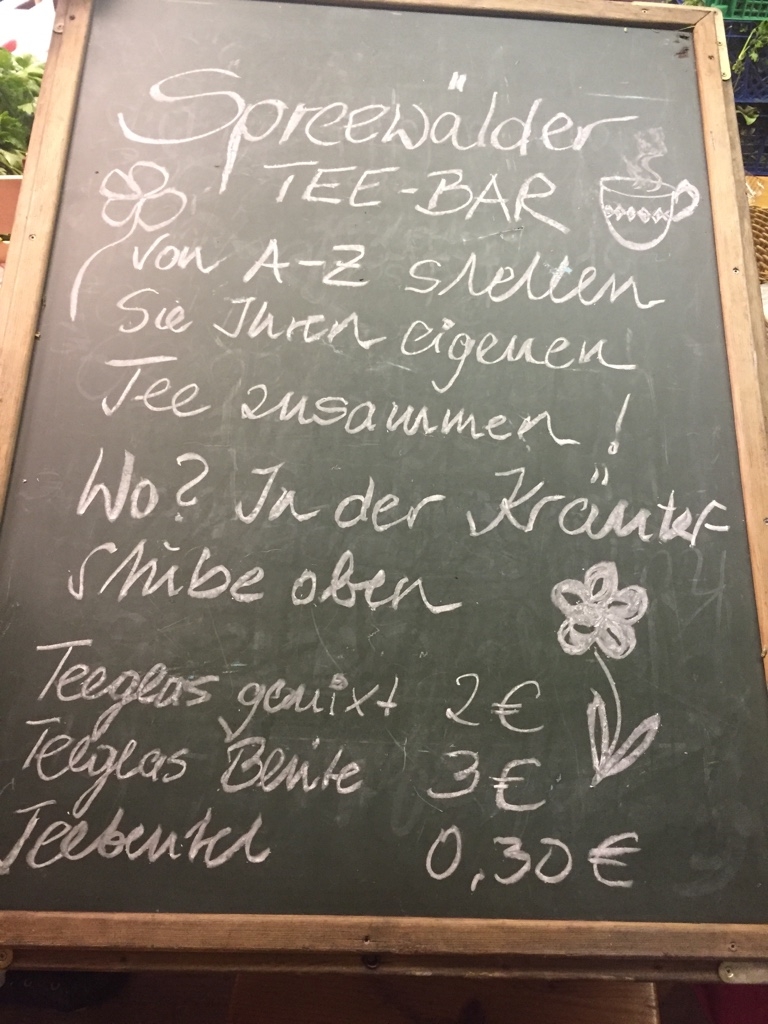 Spreewälder
TEE-BAR
von A-Z stellen
Sie Ihren eigenen
Tee zusammen!
Wo? In der Kräuter
stube oben
Teeglas gemixt 2€
Teeglas Blüte 3€
Teebeutel 0,30€